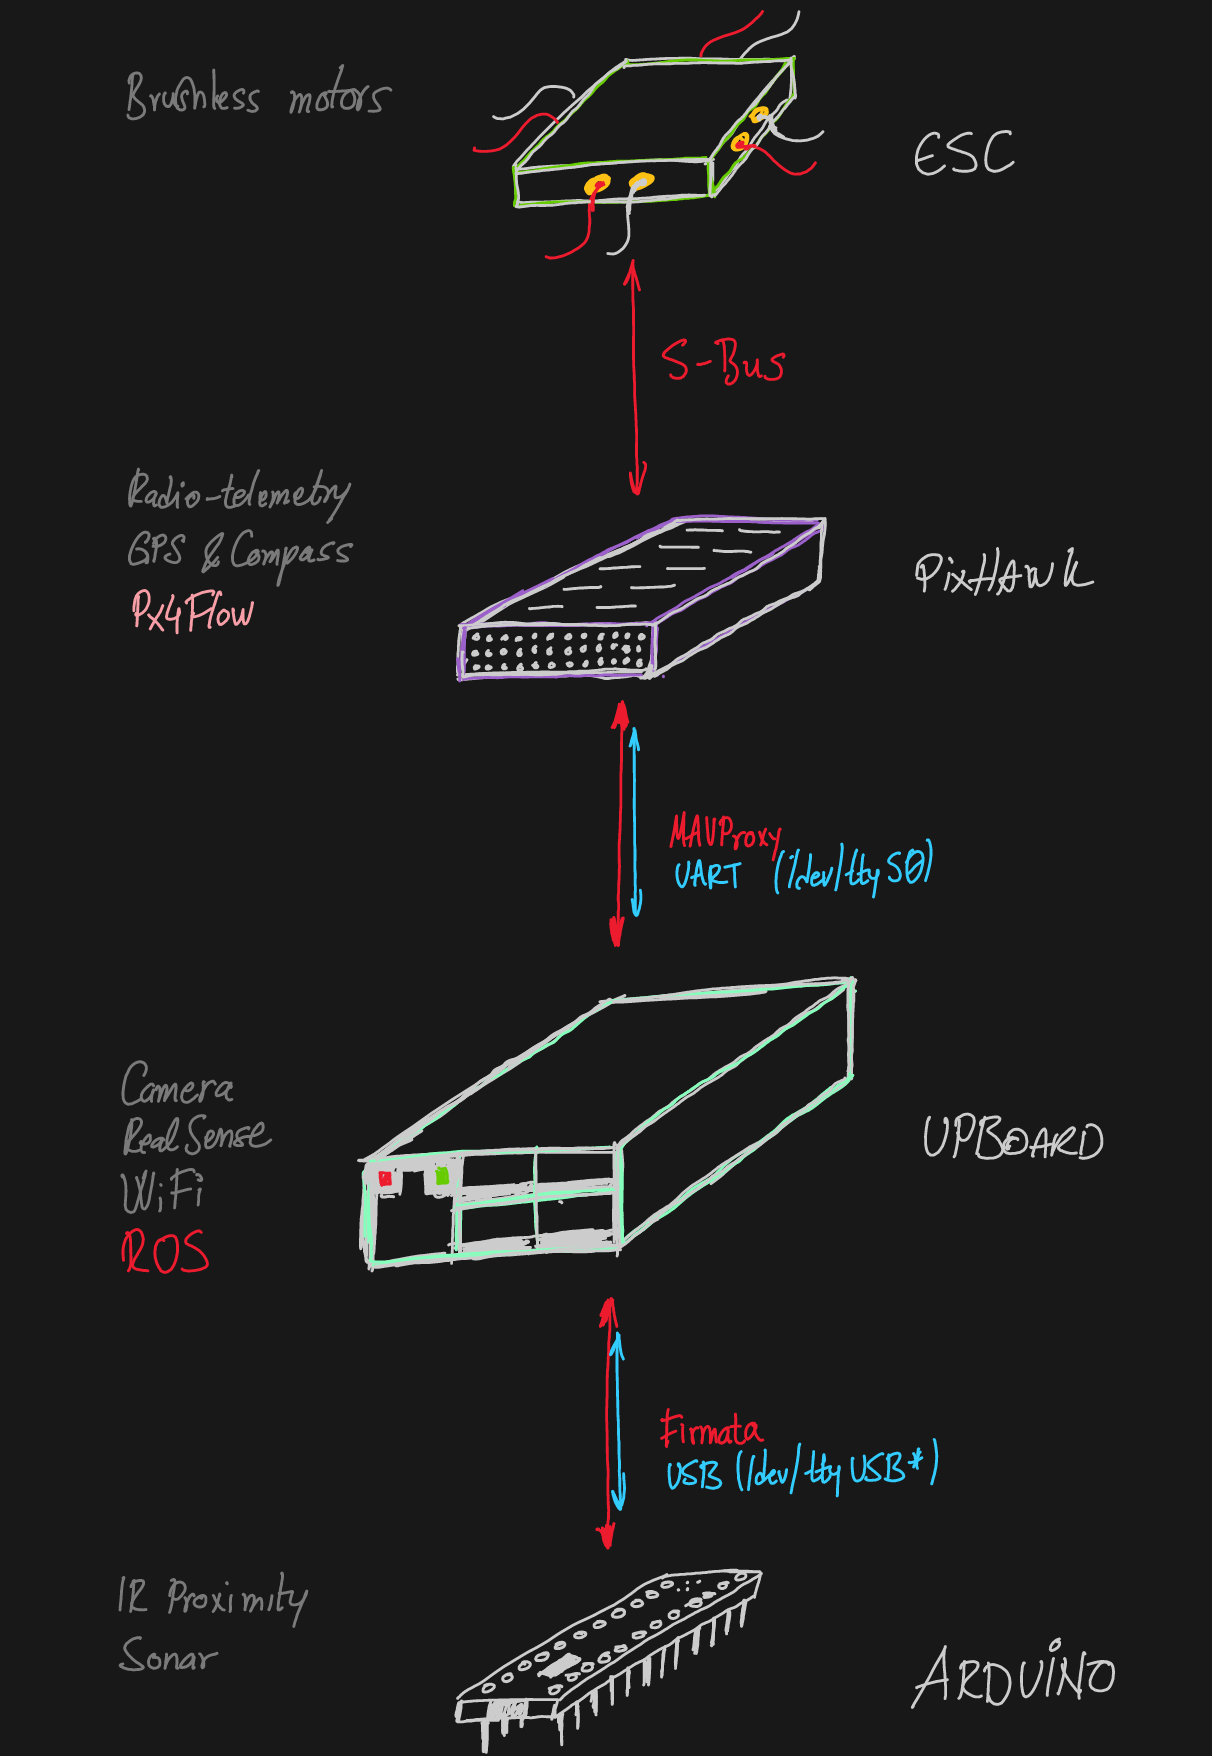 Brushless motors
ESC
S-Bus
Radio-telemetry
GPS & Compass
Px4Flow
PixHAWk
MAVProxy
UART (/dev/ttyS0)
Camera
RealSense
WiFi
ROS
UPBOARD
Firmata
USB (/dev/ttyUSB*)
IR Proximity
Sonar
ARDUiNO